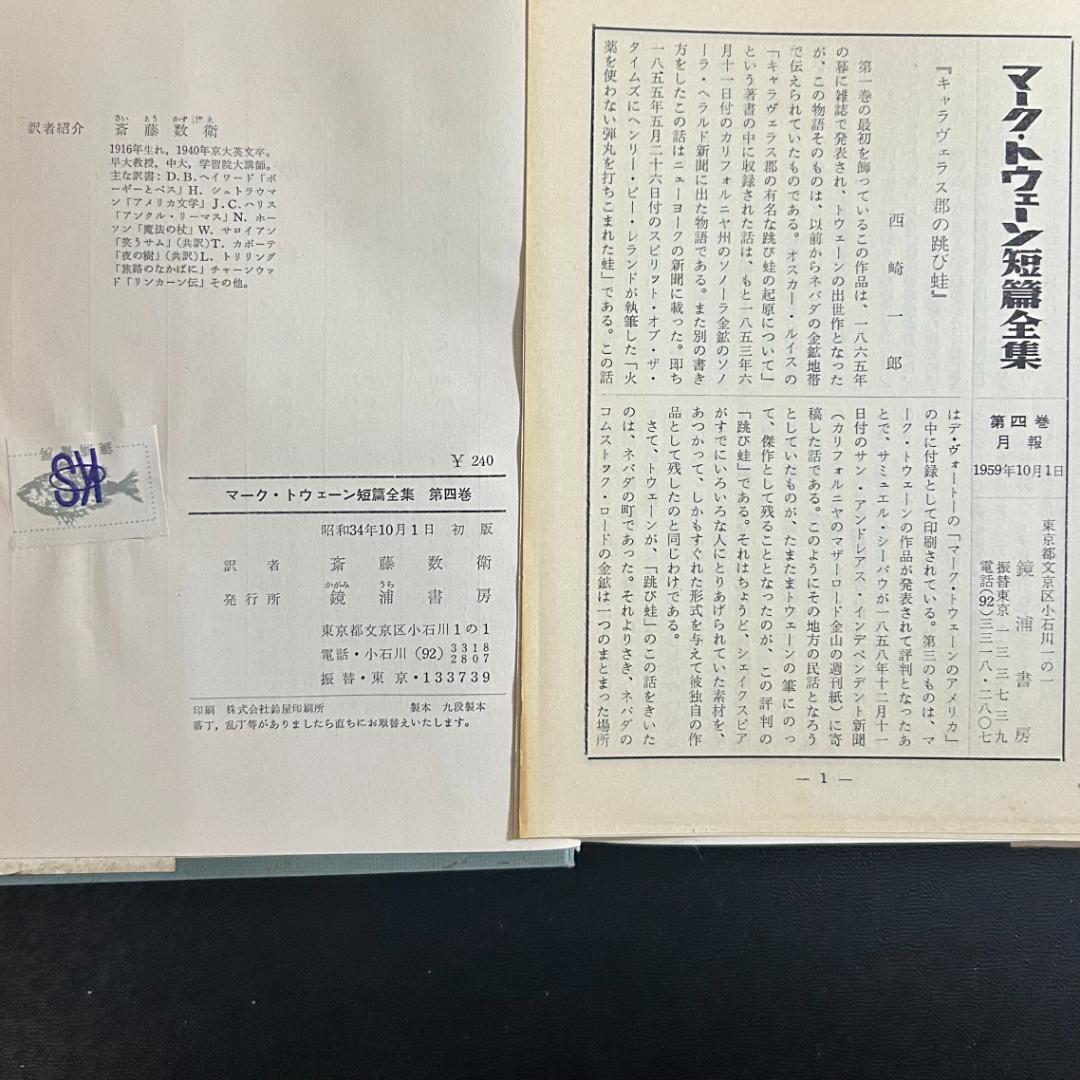 訳者紹介 斎藤数衛
さい とう かず え
1916年生れ，1940年京大英文卒。
早大教授，中大，学習院大講師。
主な訳書：D.B.ヘイワード「ポ
ーギーとベス」H. シュトラウマ
ン「アメリカ文学」J.C.ハリス
「アンクル・リーマス」N. ホー
ソン「魔法の杖」W. サロイアン
「笑うサム」(共訳)T. カポーテ
「夜の樹」(共訳)L. トリリング
「旅路のなかばに」チャーンウッ
ド「リンカーン伝」その他。
SH
¥ 240
マーク・トウェーン短篇全集 第四巻
昭和34年10月1日 初版
訳者 斎藤数衛
かがみ うら
発行所 鏡浦書房
東京都文京区小石川1の1
電話・小石川 (92) 3318 2807
振替・東京・133739
印刷 株式会社鈴屋印刷所 製本 九段製本
落丁，乱丁等がありましたら直ちにお取替えいたします。
マーク・トウェーン短篇全集
第四巻
月報
1959年10月1日
東京都文京区小石川一の一
鏡浦書房
振替東京 一三三七三九
電話(92)三三一八・二八〇七
『キャラヴェラス郡の跳び蛙』
西崎一郎
第一巻の最初を飾っているこの作品は、一八六五年
の暮に雑誌で発表され、トウェーンの出世作となった
が、この物語そのものは、以前からネバダの金鉱地帯
で伝えられていたものである。オスカー・ルイスの
「キャラヴェラス郡の有名な跳び蛙の起原について」
という著書の中に収録された話は、もと一八五三年六
月十一日付のカリフォルニヤ州のソノーラ金鉱のソノ
ーラ・ヘラルド新聞に出た物語である。また別の書き
方をしたこの話はニューヨークの新聞に載った。即ち
一八五五年五月二十六日付のスピリット・オブ・ザ・
タイムズにヘンリー・ピー・レランドが執筆した「火
薬を使わない弾丸を打ちこまれた蛙」である。この話
はデ・ヴォートーの「マーク・トウェーンのアメリカ」
の中に付録として印刷されている。第三のものは、マ
ーク・トウェーンの作品が発表されて評判となったあ
とで、サミュエル・シーバウが一八五八年十二月十一
日付のサン・アンドレアス・インデペンデント新聞
(カリフォルニヤのマザーロード金山の週刊紙)に寄
稿した話である。このようにその地方の民話となろう
としていたものが、たまたまトウェーンの筆にのっ
て、傑作として残ることとなったのが、この評判の
「跳び蛙」である。それはちょうど、シェイクスピア
がすでにいろいろな人にとりあげられていた素材を、
あつかって、しかもすぐれた形式を与えて彼独自の作
品として残したのと同じわけである。
さて、トウェーンが、「跳び蛙」のこの話をきいた
のは、ネバダの町であった。それよりさき、ネバダの
コムストック・ロードの金鉱は一つのまとまった場所
— 1 —